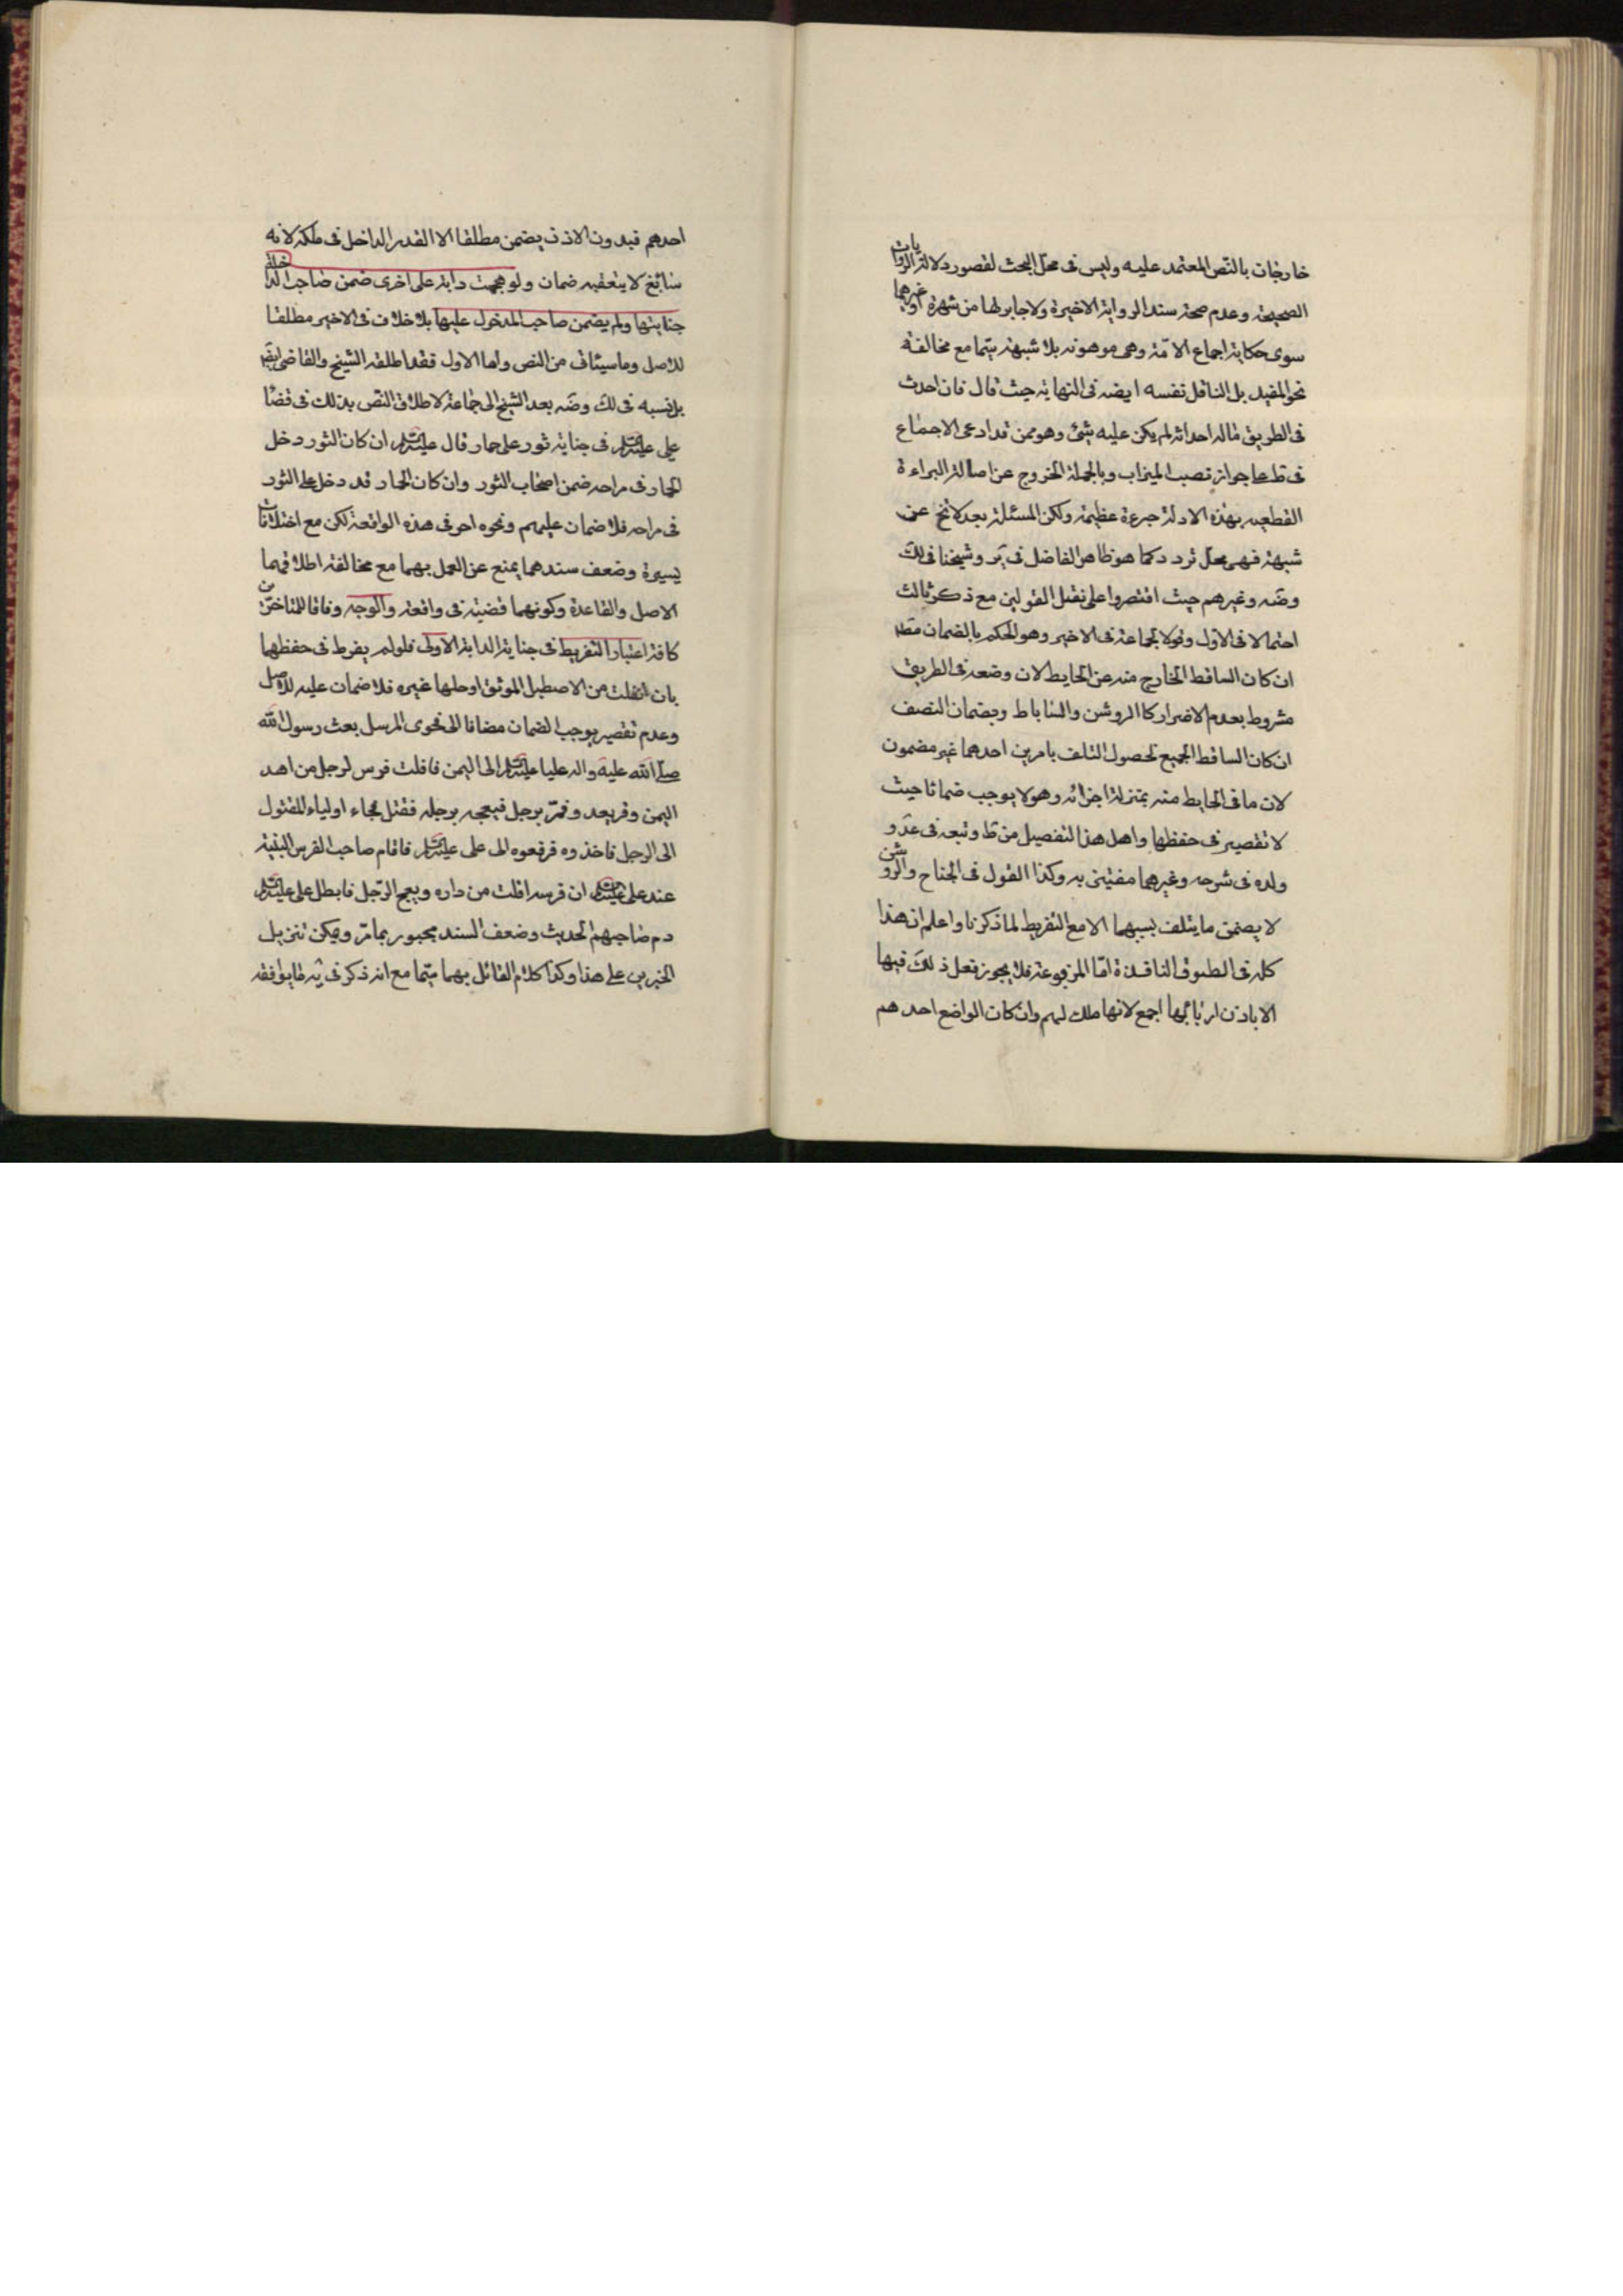 خارجات بالنص المعتمد عليه وليس في محل البحث لقصور دلالة الروايات
الصحيحة وعدم صحة سند الرواية الاخيرة ولا جابر لها من شهرة او غيرها
سوى حكاية اجماع الامة وهى موهونة بلا شبهة سيما مع مخالفة
نحو المفيد بل الناقل نفسه ايضه في النهاية حيث قال فان احدث
في الطريق ماله احداثه لم يكن عليه شئ وهو ممن قد ادعى الاجماع
في ط على جواز نصب الميزاب وبالجملة الخروج عن اصالة البراءة
القطعية بهذه الادلة جرءة عظيمة ولكن المسئلة بعد لا تخ عن
شبهة فهى محل تردد كما هو ظاهر الفاضل في ير وشيخنا في لك
وضه وغيرهم حيث اقتصروا على نقل القولين مع ذكر ثالث
احتمالا في الاول وقولا لجماعة في الاخير وهو الحكم بالضمان مطه
ان كان الساقط الخارج منه عن الحايط لان وضعه في الطريق
مشروط بعدم الاضرار كالروشن والساباط وبضمان النصف
ان كان الساقط الجميع لحصول التلف بامرين احدهما غير مضمون
لان ما في الحايط منه بمنزلة اجزائه وهو لا يوجب ضمانا حيث
لا تقصير في حفظها واصل هذا التفصيل من ط وتبعه في عد و
ولده في شرحه وغيرهما مفتين به وكذا القول في الجناح والروشن
لا يضمن ما يتلف بسببهما الا مع التفريط لما ذكرنا واعلم ان هذا
كله في الطرق النافذة اما المرفوعة فلا يجوز فعل ذلك فيها
الا باذن اربابها اجمع لانها ملك لهم وان كان الواضع احدهم
احدهم فبدون الاذن يضمن مطلقا الا القدر الداخل في ملكه لانه
سائغ لا يتعقبه ضمان ولو هجمت دابة على اخرى ضمن صاحب الداخلة
جنايتها ولم يضمن صاحب المدخول عليها بلا خلاف في الاخير مطلقا
للاصل وما سيئاتى من النص واما الاول فقد اطلقه الشيخ والقاضى ايضه
بل نسبه في لك وضه بعد الشيخ الى جماعة لاطلاق النص بذلك في قضا
على عليه السلم في جناية ثور على حمار قال عليه السلم ان كان الثور دخل
الحمار في مراحه ضمن اصحاب الثور وان كان الحمار قد دخل على الثور
في مراحه فلا ضمان عليهم ونحوه اخر في هذه الواقعة لكن مع اختلافات
يسيرة وضعف سندهما يمنع عن العمل بهما مع مخالفة اطلاقهما
الاصل والقاعدة وكونهما قضية في واقعة والوجه وفاقا للمتاخرين
كافة اعتبار التفريط في جناية الدابة الاولى فلو لم يفرط في حفظها
بان انفلتت من الاصطبل الموثق او حلها غيره فلا ضمان عليه للاصل
وعدم تقصير يوجب الضمان مضافا الى فحوى المرسل بعث رسول الله
صلى الله عليه واله عليا عليه السلم الى اليمن فافلت فرس لرجل من اهل
اليمن ومر يعدو فمر برجل فبعجه برجله فقتل فجاء اولياء المقتول
الى الرجل فاخذوه فرفعوه الى على عليه السلم فاقام صاحب الفرس البينة
عند على عليه السلم ان فرسه افلت من داره وبعج الرجل فابطل على عليه السلم
دم صاحبهم الحديث وضعف السند مجبور بما مر ويمكن تنزيل
الخبرين على هذا وكذا كلام القائل بهما سيما مع انه ذكر في يه ما يوافقه